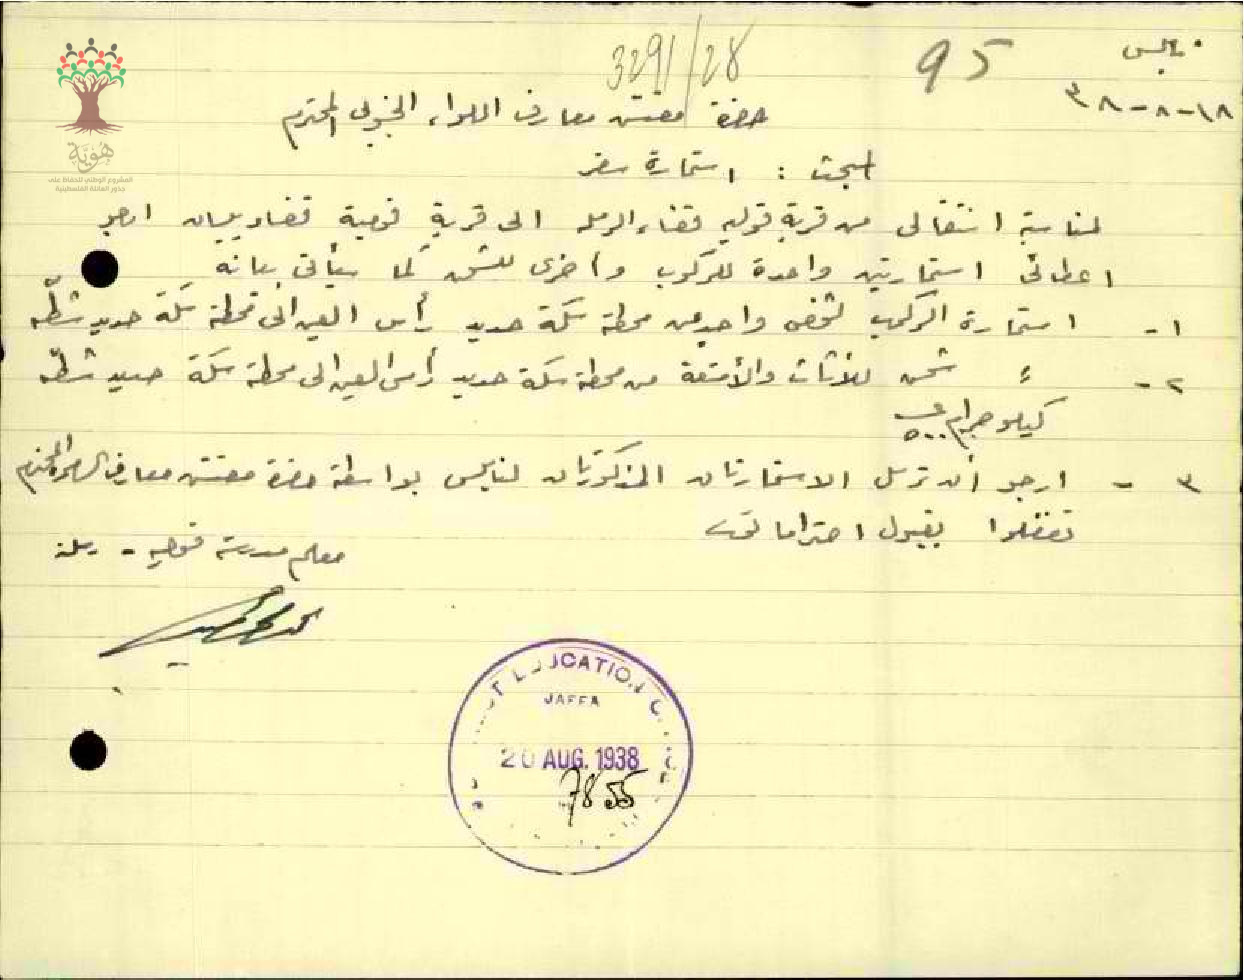 3291/28
95
نابلس
١٨-٨-٣٨
حضرة مفتش معارف اللواء الجنوبي المحترم
البحث : استمارة سفر
لمناسبة انتقالي من قرية قوليه قضاء الرمله الى قرية قومية قضاء بيسان ارجو
اعطائي استمارتين واحدة للركوب واخرى للشحن كما سيأتي بيانه
١- استمارة الركوب لشخص واحد من محطة سكة حديد رأس العين الى محطة سكة حديد شطّه
٢- " شحن للأثاث والأمتعة من محطة سكة حديد رأس العين الى محطة سكة حديد شطّه
كيلو جرام ٥٠٠
٣- ارجو أن ترسل الاستمارتان المذكورتان لنابلس بواسطة حضرة مفتش معارف المحترم
تفضلوا بقبول احتراماتي
معلم مدرسة قوليه - رملة
هُوِيَّة
المشروع الوطني للحفاظ على
جذور العائلة الفلسطينية
EDUCATION
JAFFA
20 AUG. 1938
7855